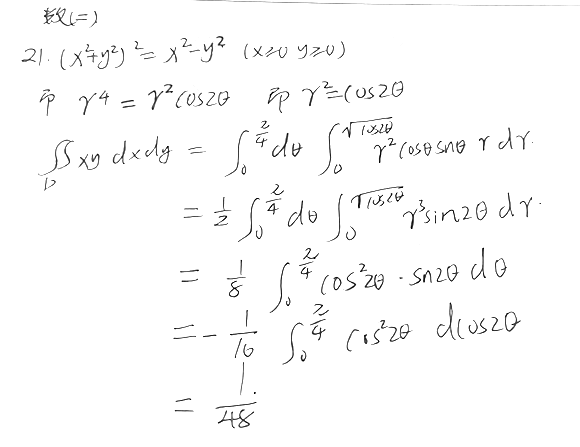 数(二)
21. (x²+y²)² = x²-y² (x≥0 y≥0)
即 r⁴ = r²cos2θ 即 r²=cos2θ
∬_D xy dxdy = ∫₀^(π/4) dθ ∫₀^√cos2θ r²cosθsinθ r dr.
= 1/2 ∫₀^(π/4) dθ ∫₀^√cos2θ r³sin2θ dr.
= 1/8 ∫₀^(π/4) cos²2θ · sin2θ dθ
= - 1/16 ∫₀^(π/4) cos²2θ dcos2θ
= 1/48